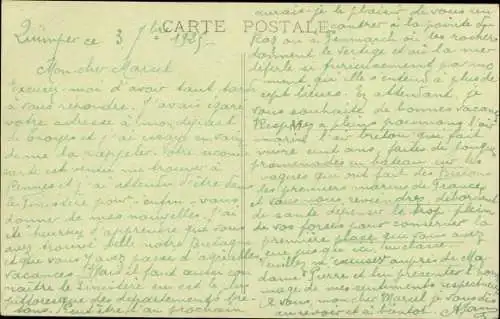 CARTE POSTALE
Quimper ce 3 7bre 1925
Mon cher Marcel
Excusez-moi d'avoir tant tardé
à vous répondre. J'avais égaré
votre adresse à mon départ
de Troyes et j'ai essayé en vain
de me la rappeler. Votre
carte est venue me trouver à
Rennes et j'ai attendu d'être dans
le Finistère pour enfin vous
donner de mes nouvelles. J'ai
été heureux d'apprendre que vous
avez trouvé belle notre Bretagne
et que vous y avez passé d'agréables
vacances. Mais il faut aussi con
naître le Finistère, c'est le plus
pittoresque des départements bre
tons. Peut-être au prochain
aurais-je le plaisir de vous ren
contrer à la pointe du
Raz ou à Penmarch où les rochers
donnent le vertige et où la mer
déferle si furieusement par mo
ment qu'elle s'entend à plus de
sept lieues. En attendant, je
vous souhaite de bonnes vacances
Respirez à pleins poumons l'air
marin, l'air breton qui fait
vivre cent ans, faites de longues
promenades en bateau sur les
vagues qui ont fait des Bretons
les premiers marins de France,
et vous nous reviendrez débordant
de santé dépenser le trop plein
de vos forces pour conserver la
première place que vous avez
en classe.
Veuillez m'excuser auprès de Ma
dame Pierre et lui présenter l'hom
mage de mes sentiments respectueux
A vous, mon cher Marcel, je vous dis
au revoir et à bientôt.